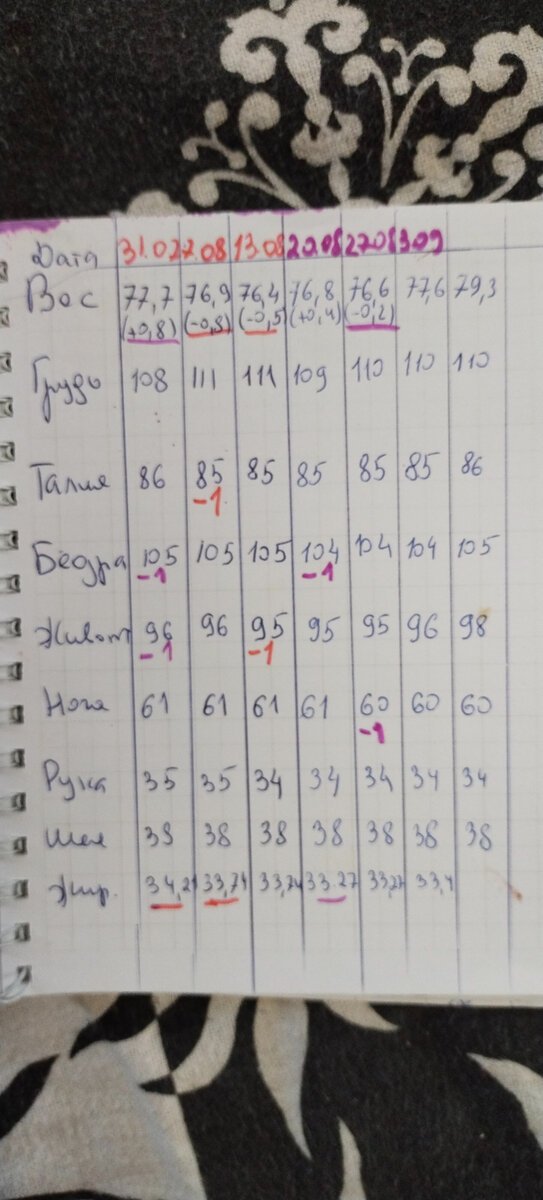 Дата 31.07 7.08 13.08 20.08 27.08 3.09
Вес 77,7 76,9 76,4 76,8 76,6 77,6 79,3
(+0,8) (-0,8) (-0,5) (+0,4) (-0,2)
Грудь 108 111 111 109 110 110 110
Талия 86 85 85 85 85 85 86
-1
Бедра 105 105 105 104 104 104 105
-1 -1
Живот 96 96 95 95 95 96 98
-1 -1
Нога 61 61 61 61 60 60 60
-1
Рука 35 35 34 34 34 34 34
Шея 38 38 38 38 38 38 38
Жир. 34,21 33,74 33,74 33.27 33,27 33,4